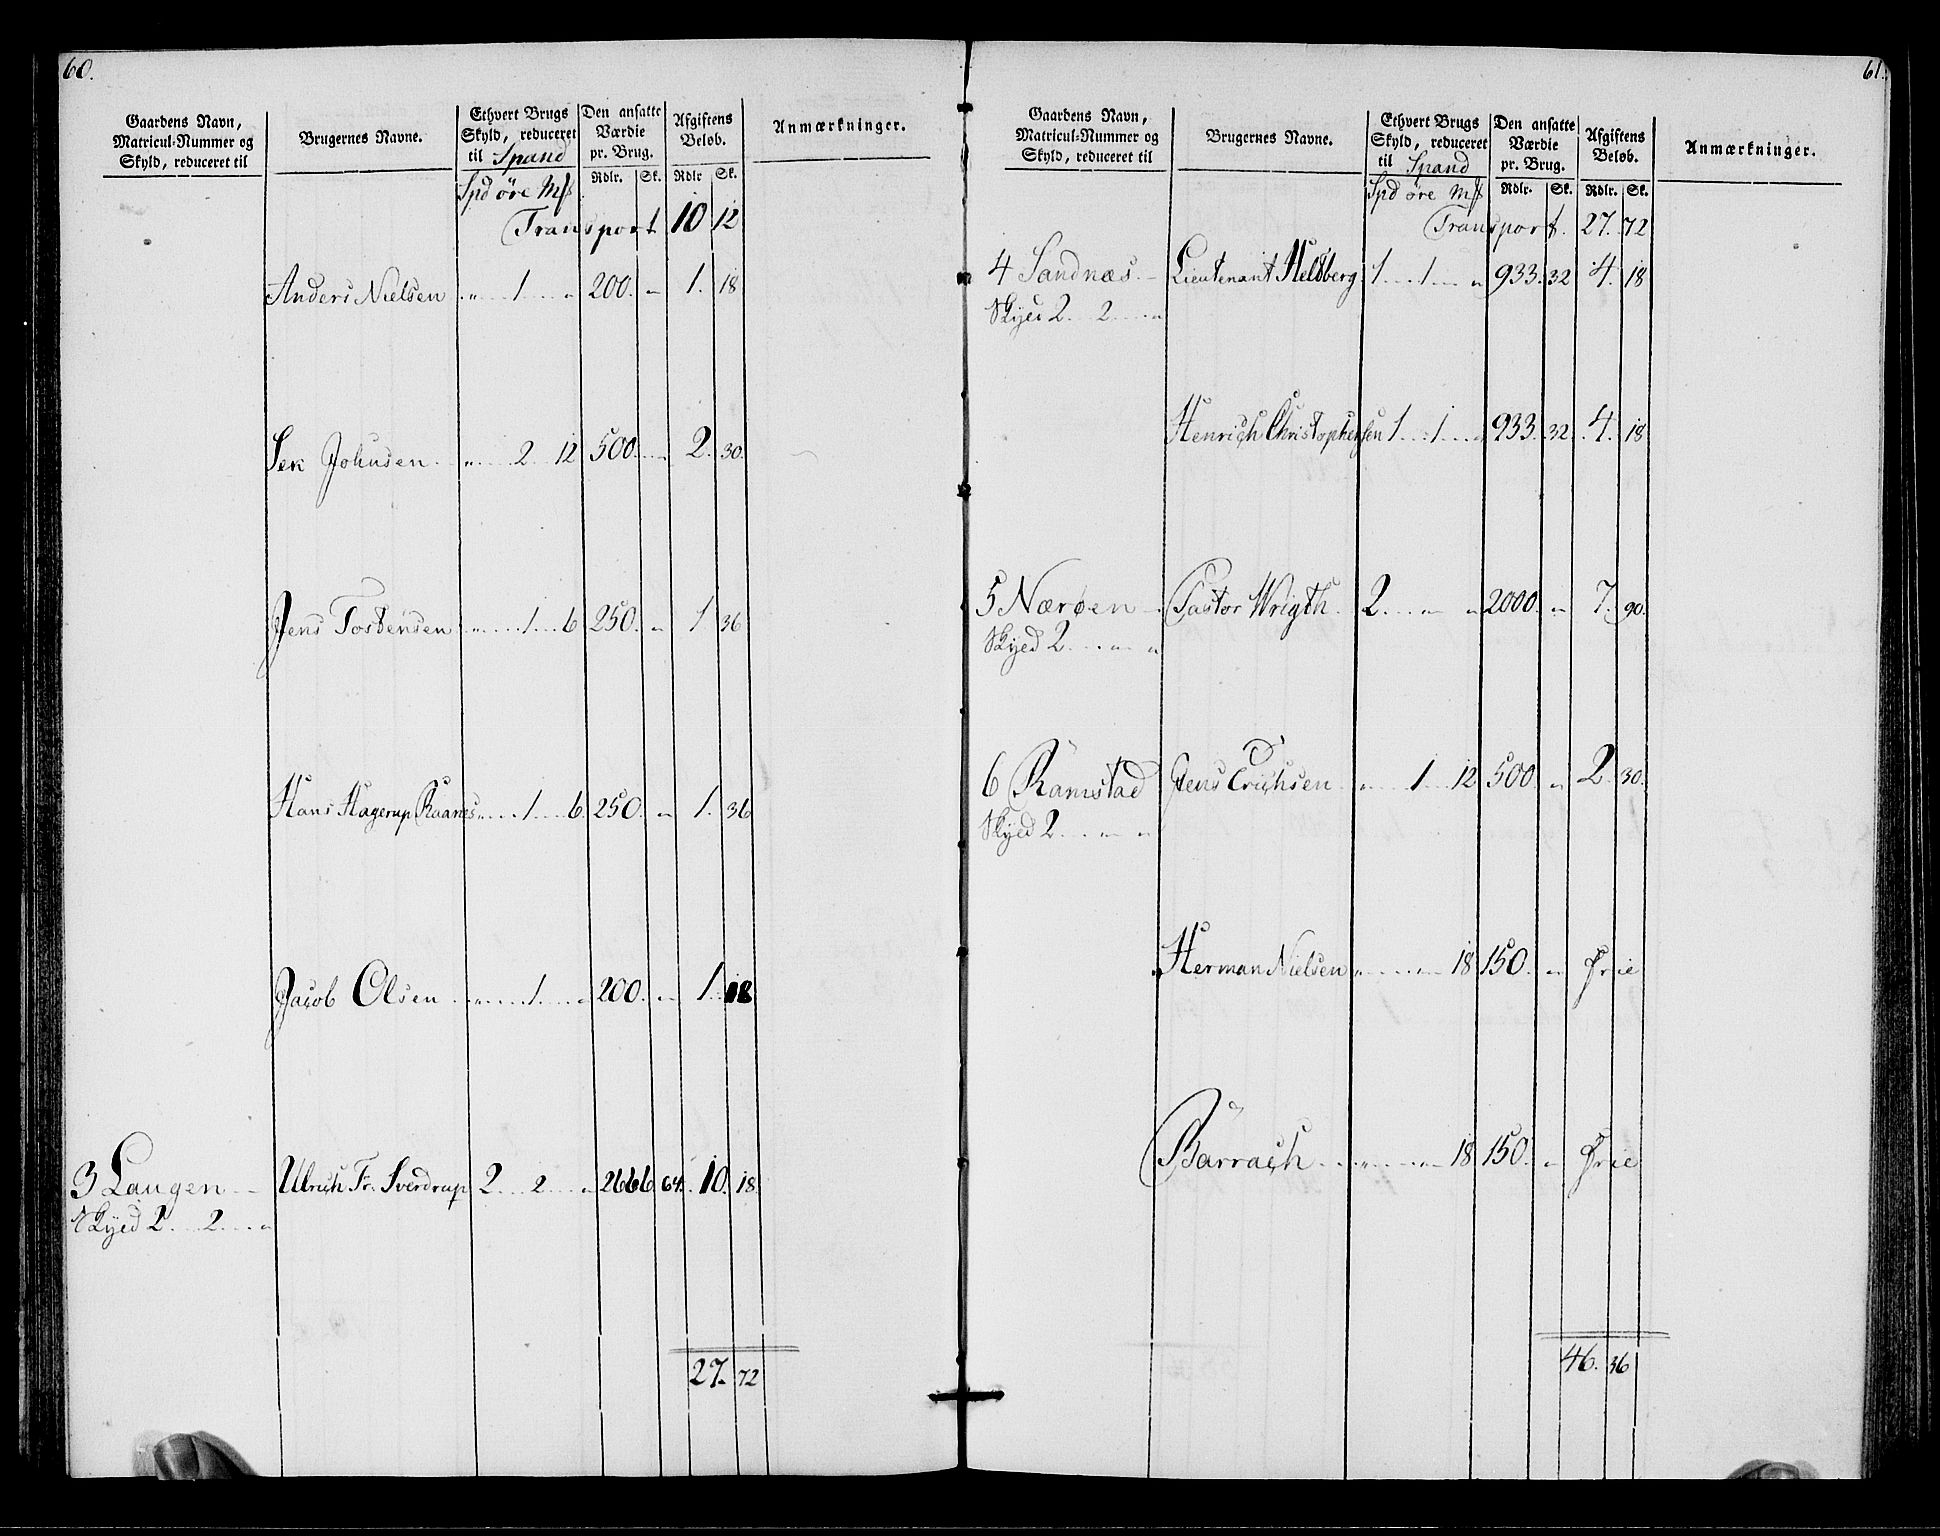 60.
Gaardens Navn, Matricul-Nummer og Skyld, reduceret til
Brugernes Navne.
Ethvert Brugs Skyld, reduceret til Spand
Den ansatte Værdie pr. Brug.
Afgiftens Beløb.
Anmærkninger.
Spd öre Mß Rdlr. Sk. Rdlr Sk.
Transport 10 12
Anders Nielsen „ 1 „ 200. „ 1. 18
Johnsen „ 2 12 500. „ 2. 30.
Jens Tostensen „ 1 6 250. „ 1 36
Hans Hagerup Raanes „ 1 6 250. „ 1. 36
Jacob Olsen „ 1 „ 200. „ 1. 18
3 Laugen Ulrich Fr. Sverdrup 2 2 „ 2666 64. 10. 18.
Skyed 2 2 „
27. 72
61.
Gaardens Navn, Matricul-Nummer og Skyld, reduceret til
Brugernes Navne.
Ethvert Brugs Skyld, reduceret til Spand
Den ansatte Værdie pr. Brug.
Afgiftens Beløb.
Anmærkninger.
Spd öre Mß Rdlr. Sk. Rdlr. Sk.
Transport. 27. 72
4 Sandnæs Lieutenant Heldberg 1 1 „ 933. 32 4. 18
Skyed 2 2 „
Henrich Christophersen 1 1 „ 933. 32. 4. 18
5 Nærøen Pastor Wrigth. 2 „ „ 2000. „ 7. 90.
Skyed 2 „ „
6 Ramstad Jens Erichsen „ 1 12 500 „ 2. 30.
Skyed 2 „ „
Herman Nielsen „ „ 18 150. „ Frie
Barrach „ „ 18 150. „ Frie
46. 36